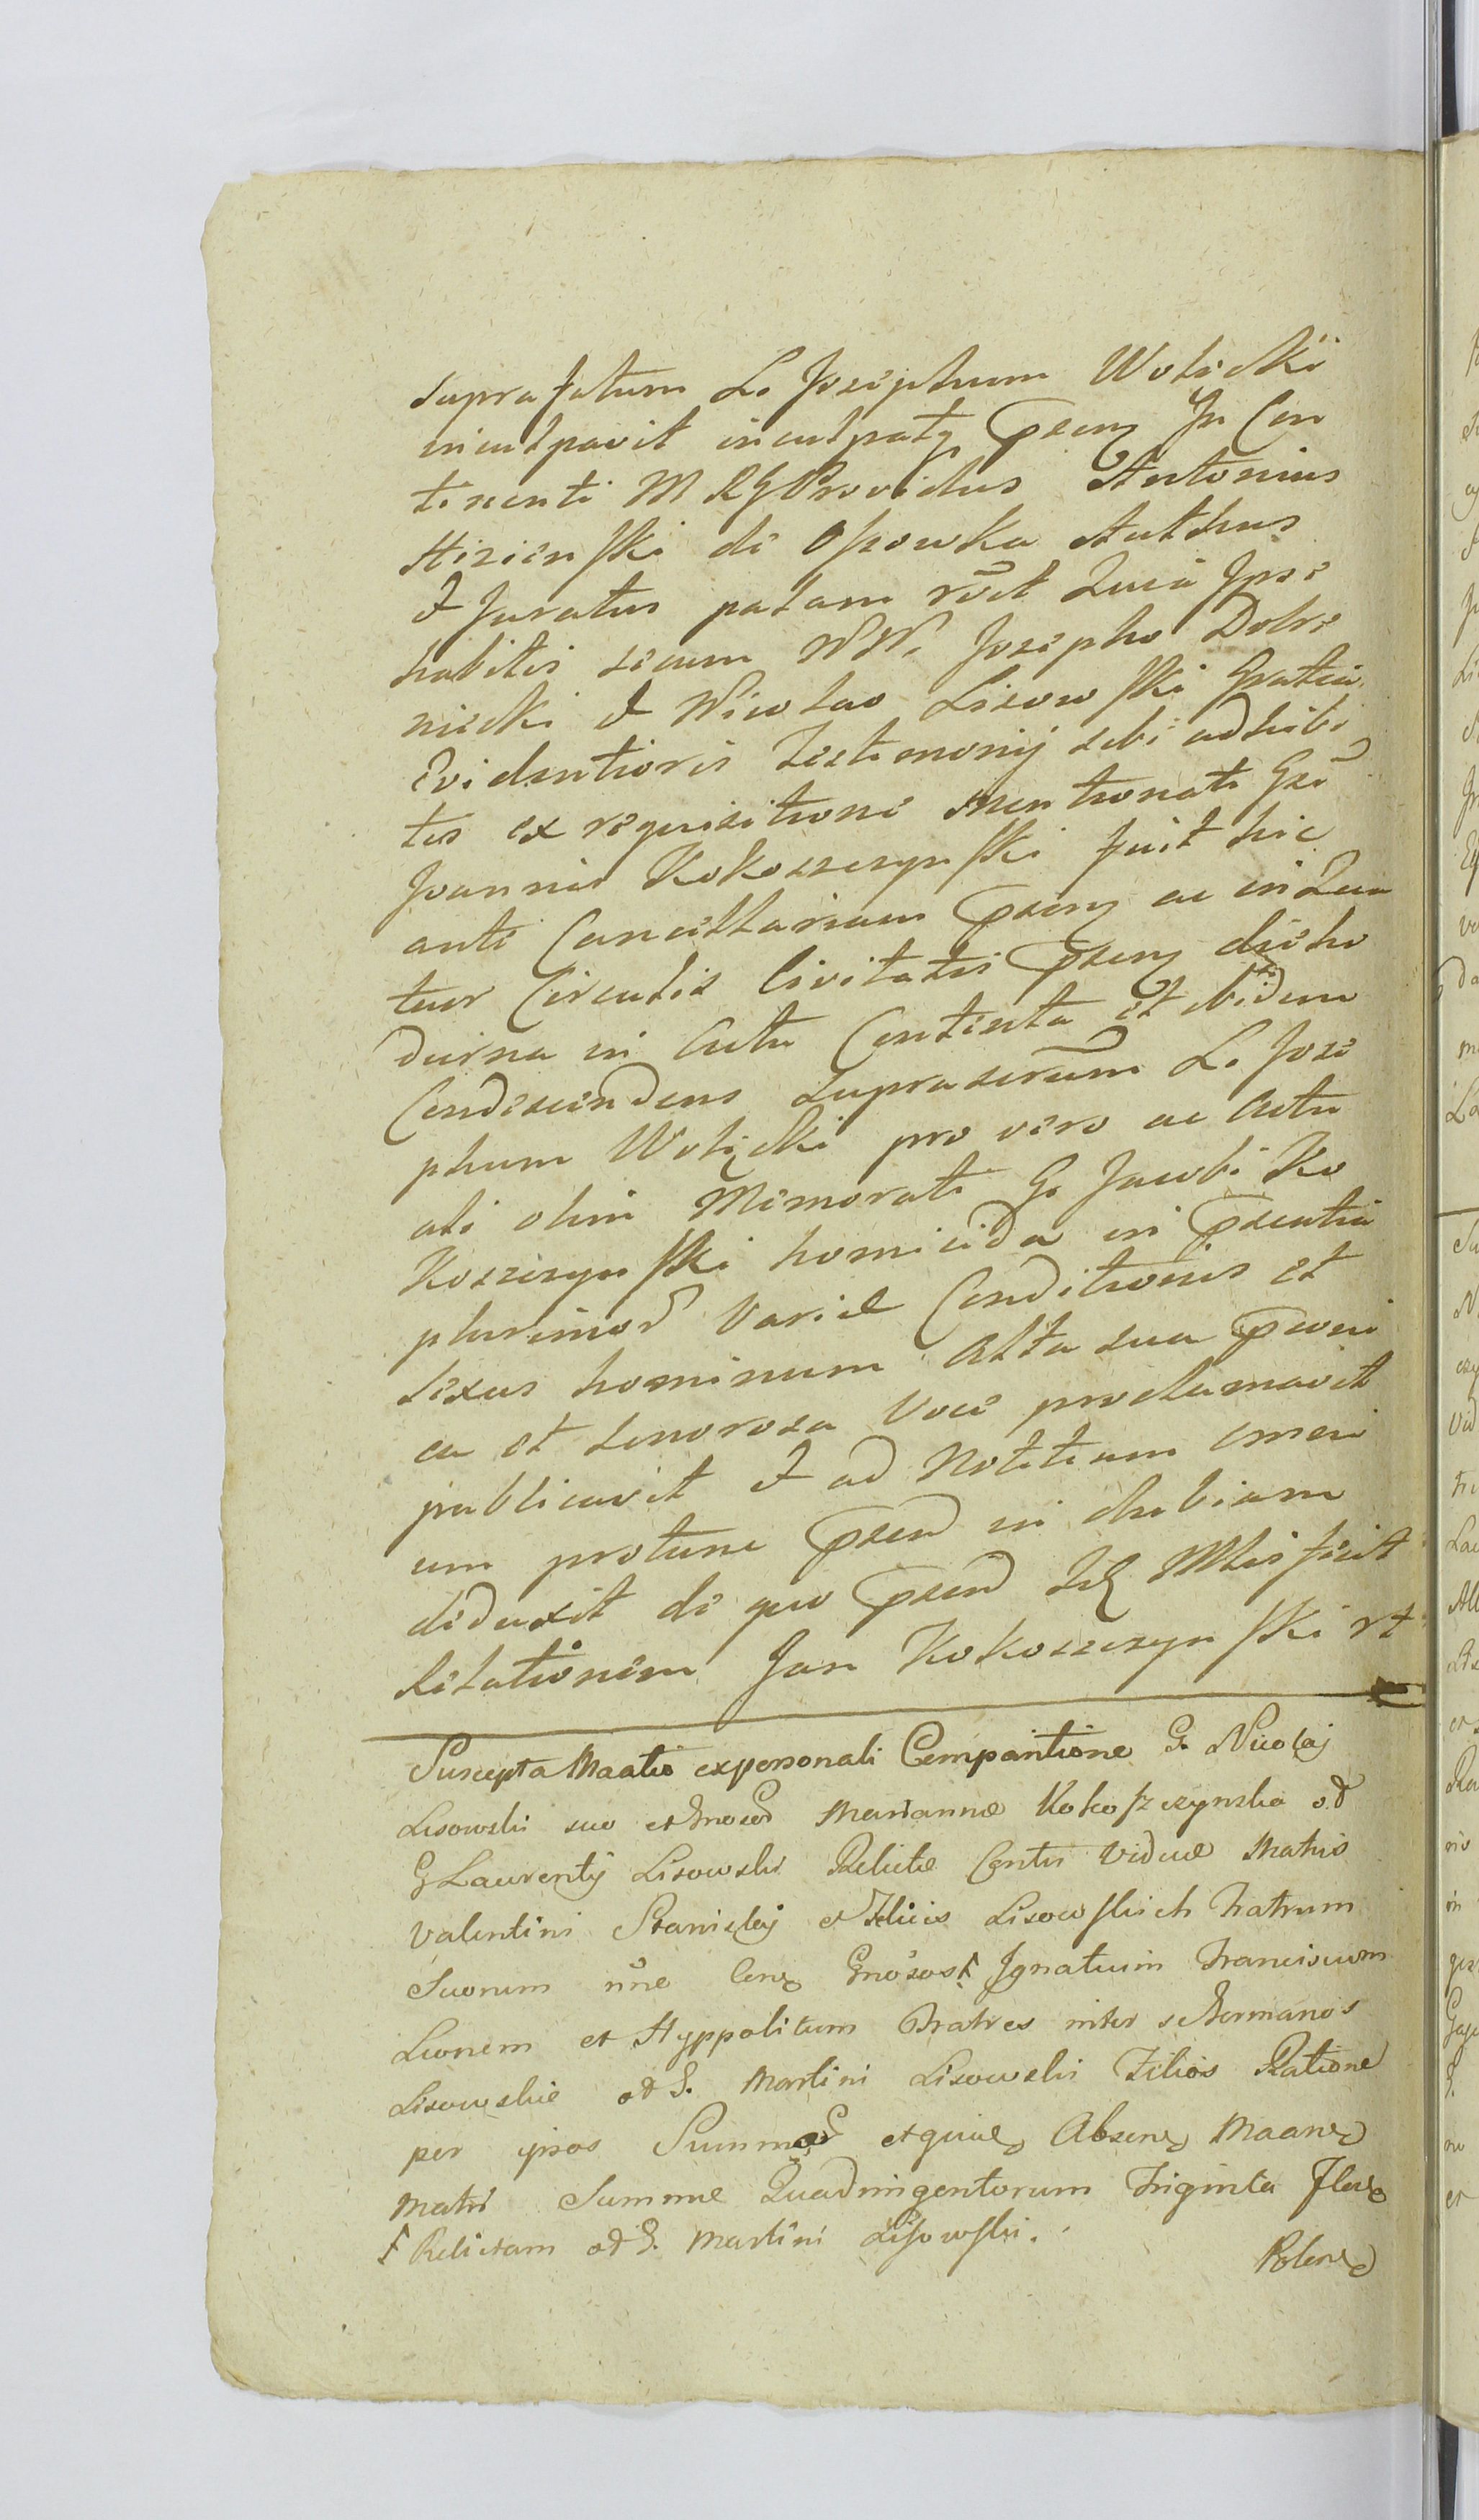 suprafatum L. Josephum Wolicki
inculpavit inculpatq pseny In Con
tinenti M RG Providus Antonius
Hizienski de Osowka Authus
et Juratus palam rõct Quia Ipse
habitis secum NN. Josepho Dobrz
niecki et Nicolao Lisowski Gratia
Evidentioris Testimonij sibi adhibi
tis ex requisitione mentionati Gsi
Joannis Kokoszczynski fuit hic
ante Cancellariam pseny ac in Qua
tuor Circulis Civitatis pseny
durna in Actu Contenta et ibidem
Condescendens suprascrum L. Jose
phum Wolicki pro vero ac Actu
ali olim Memorati G. Jacobi Ko
koszczynski homicida in psentia
plurimor Variae Conditionis et
sexus hominum Alta sua
ca et sonorosa Voce proclamavit
publicavit et ad Notitiam omni
um protunc psend in dubiam
deduxit de quo psend Mtis fecit
Relationem Jan Kokoszczynski
Suscepta Maatio expersonali Comparitione G. Nicolaj
Lisowski suo et Mariannae Kokoszczynska od
G Laurentij Lisowski Relictae Contis Viduae Matris
Valentini Stanislaj et Felicis Lisowskich Fratrum
Suorum nõe Gnosos Ignatium Franciscum
Leonem et Hyppolitum Fratres inter se Germanos
Lisowskie od G. Martini Lisowski Filios Ratione
per ipsos Summae Absene Maane
Matri Summae Quadringentorum Triginta Flore
Relictam od G. Martini Lisowski.
Polone